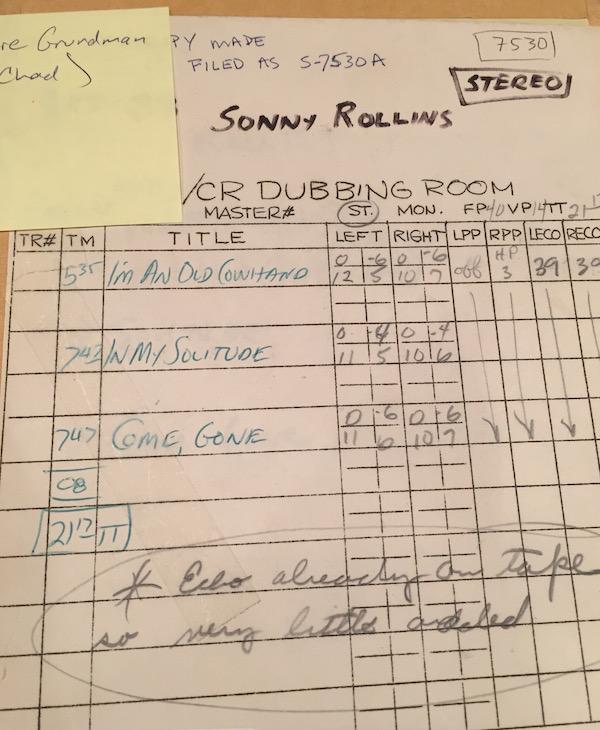 re Grundman
Chad)
PY MADE
FILED AS S-7530A
7530
STEREO
SONNY ROLLINS
/CR DUBBING ROOM
MASTER# ST. MON. FP 40 VP 14 TT 21 17
TR# TM TITLE LEFT RIGHT LPP RPP LECO RECO
5 35 I'M AN OLD COWHAND 0 -6 0 -6 off HP 39 39
12 5 10 7 3
0 -4 0 -4
7 43 IN MY SOLITUDE 11 5 10 6
0 -6 0 -6
7 47 COME, GONE 11 6 10 7
08
21 17 TT
* Echo already on tape
so very little added